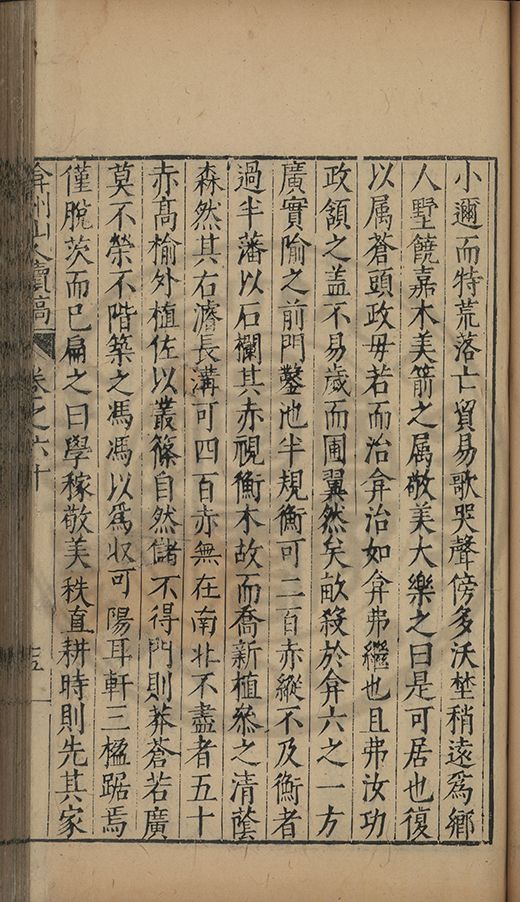 小邇而特荒落亡貿易歌哭聲傍多沃埜稍遠爲鄉
人墅饒嘉木美箭之属敬美大樂之曰是可居也復
以属蒼頭政毋若而治弇治如弇弗繼也且弗汝功
政頟之盖不易歳而圃翼然矣畝殺於弇六之一方
廣實隃之前門鑿池半規衡可二百赤縱不及衡者
過半藩以石欄其赤視衡木故而喬新植叅之清蔭
森然其右濬長溝可四百赤無在南北不盡者五十
赤髙榆外植佐以叢篠自然儲不得門則莽蒼若廣
莫不榮不階築之馮馮以爲収可陽耳軒三楹踞焉
僅脫茨而已扁之曰學稼敬美秩直耕時則先其家
弇州山人續稿 卷之六十